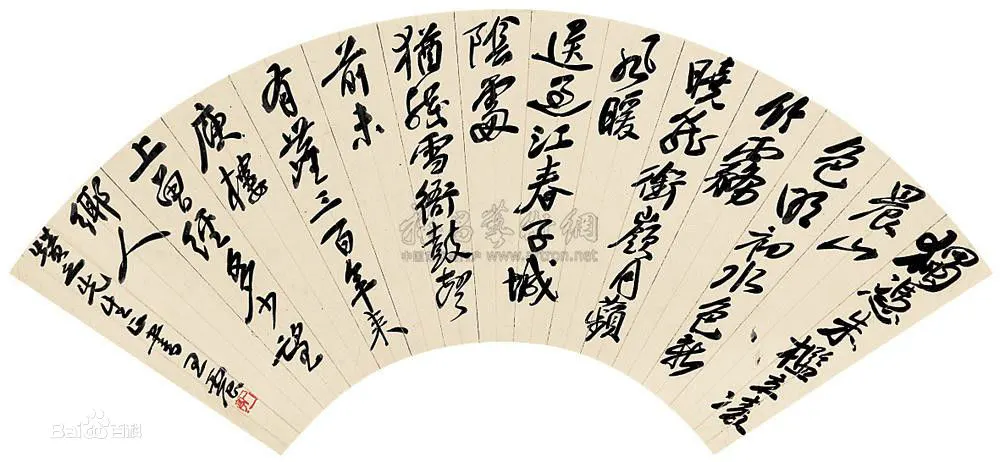 獨憑朱檻立凌
晨山
色明初水色新
竹霧
曉籠銜嶺月蘋
風暖
送過江春子城
陰處
猶殘雪衙鼓聲
前未
有塵三百年来
庾樓
上曾經多少望
鄉人
先生 書王震
藝術網
Bai百科